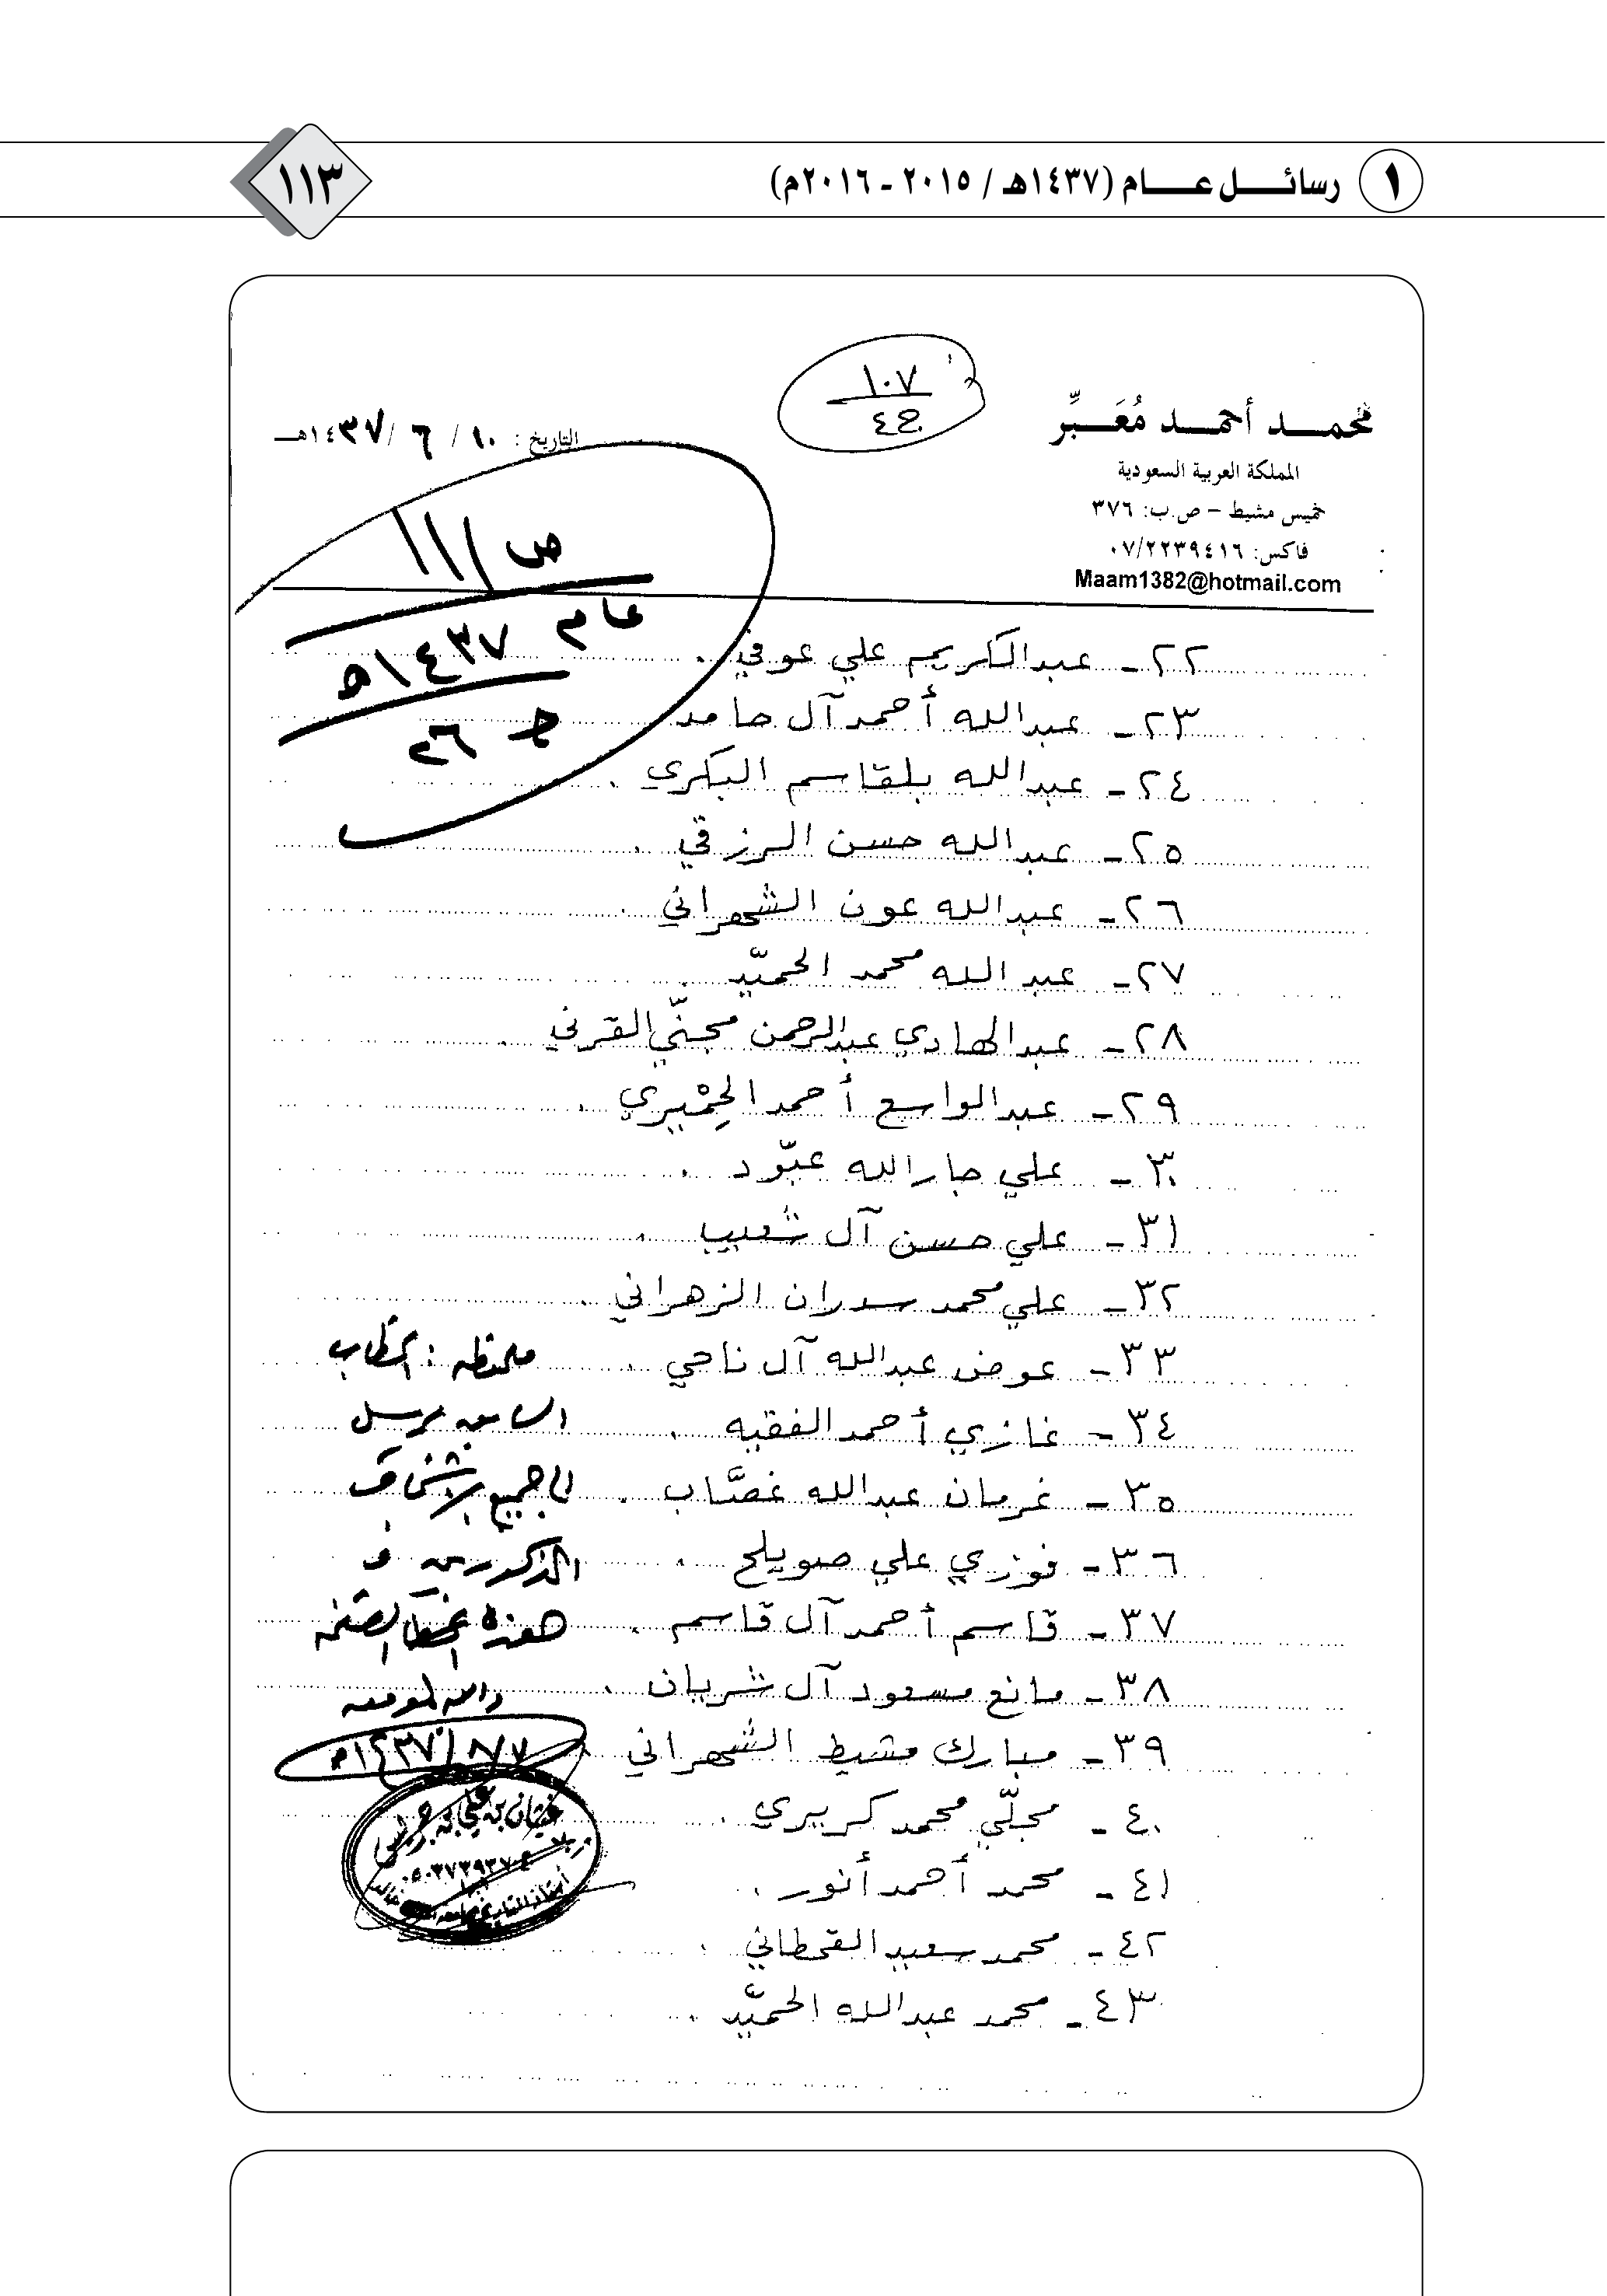 ١ رسائل عام (١٤٣٧هـ / ٢٠١٥ - ٢٠١٦م)
١١٣
محمد أحمد مُعَبِّر
المملكة العربية السعودية
خميس مشيط - ص.ب: ٣٧٦
فاكس: ٠٧/٢٢٣٩٤١٦
Maam1382@hotmail.com
١٠٧
ج٤
التاريخ: ١٠ / ٦ / ١٤٣٧هـ
ص/١١
عام ١٤٣٧هـ
ج ٢٦
٢٢- عبدالكريم علي عوفي.
٢٣- عبدالله أحمد آل حامد
٢٤- عبدالله بلقاسم البكري.
٢٥- عبدالله حسن الرزقي.
٢٦- عبدالله عون الشهراني.
٢٧- عبدالله محمد الحميّد.
٢٨- عبدالهادي عبدالرحمن مجنّي القرني.
٢٩- عبدالواسع أحمد الحِمْيري.
٣٠- علي جارالله عبّود.
٣١- علي حسن آل شعيب.
٣٢- علي محمد سدران الزهراني.
٣٣- عوض عبدالله آل ناحي.
٣٤- غازي أحمد الفقيه.
٣٥- غرمان عبدالله غصَّاب.
٣٦- فوزي علي صويلح.
٣٧- قاسم أحمد آل قاسم.
٣٨- مانع مسعود آل شريان.
٣٩- مبارك مشيط الشهراني
٤٠- مجلّي محمد كريري.
٤١- محمد أحمد أنور.
٤٢- محمد سعيد القحطاني.
٤٣- محمد عبدالله الحميّد.
ملحوظة: الخطاب
السابق يرسل
إلى جميع الأشخاص
المذكورين في
هذه
والله الموفق
١٤٣٧/٨/٧هـ
غيثان بن علي بن جريس